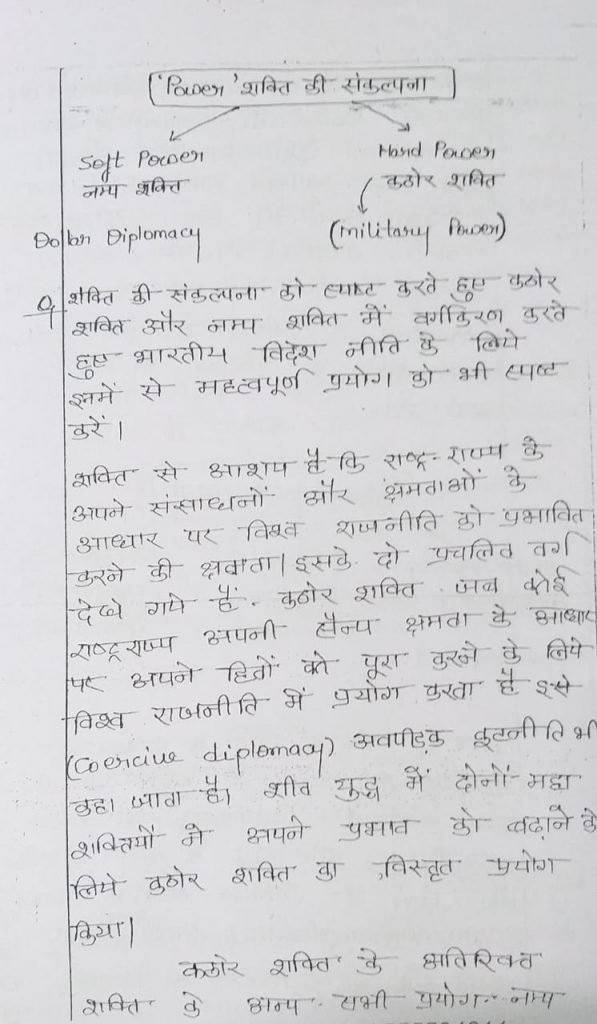 'Power' शक्ति की संकल्पना
Soft Power
नम्य शक्ति
Hard Power
कठोर शक्ति
Dollar Diplomacy
(military Power)
Q शक्ति की संकल्पना को स्पष्ट करते हुए कठोर
शक्ति और नम्य शक्ति में वर्गीकरण करते
हुए भारतीय विदेश नीति के लिये
इनमें से महत्वपूर्ण प्रयोग को भी स्पष्ट
करें।
शक्ति से आशय है कि राष्ट्र-राज्य के
अपने संसाधनों और क्षमताओं के
आधार पर विश्व राजनीति को प्रभावित
करने की क्षमता। इसके दो प्रचलित वर्ग
देखे गये हैं. कठोर शक्ति जब कोई
राष्ट्रराज्य अपनी सैन्य क्षमता के आधार
पर अपने हितों को पूरा करने के लिये
विश्व राजनीति में प्रयोग करता है इसे
(Coercive diplomacy) अवपीड़क कूटनीति भी
कहा जाता है। शीत युद्ध में दोनों महा
शक्तियों ने अपने प्रभाव को बढ़ाने के
लिये कठोर शक्ति का विस्तृत प्रयोग
किया।
कठोर शक्ति के अतिरिक्त
शक्ति के अन्य सभी प्रयोग नम्य